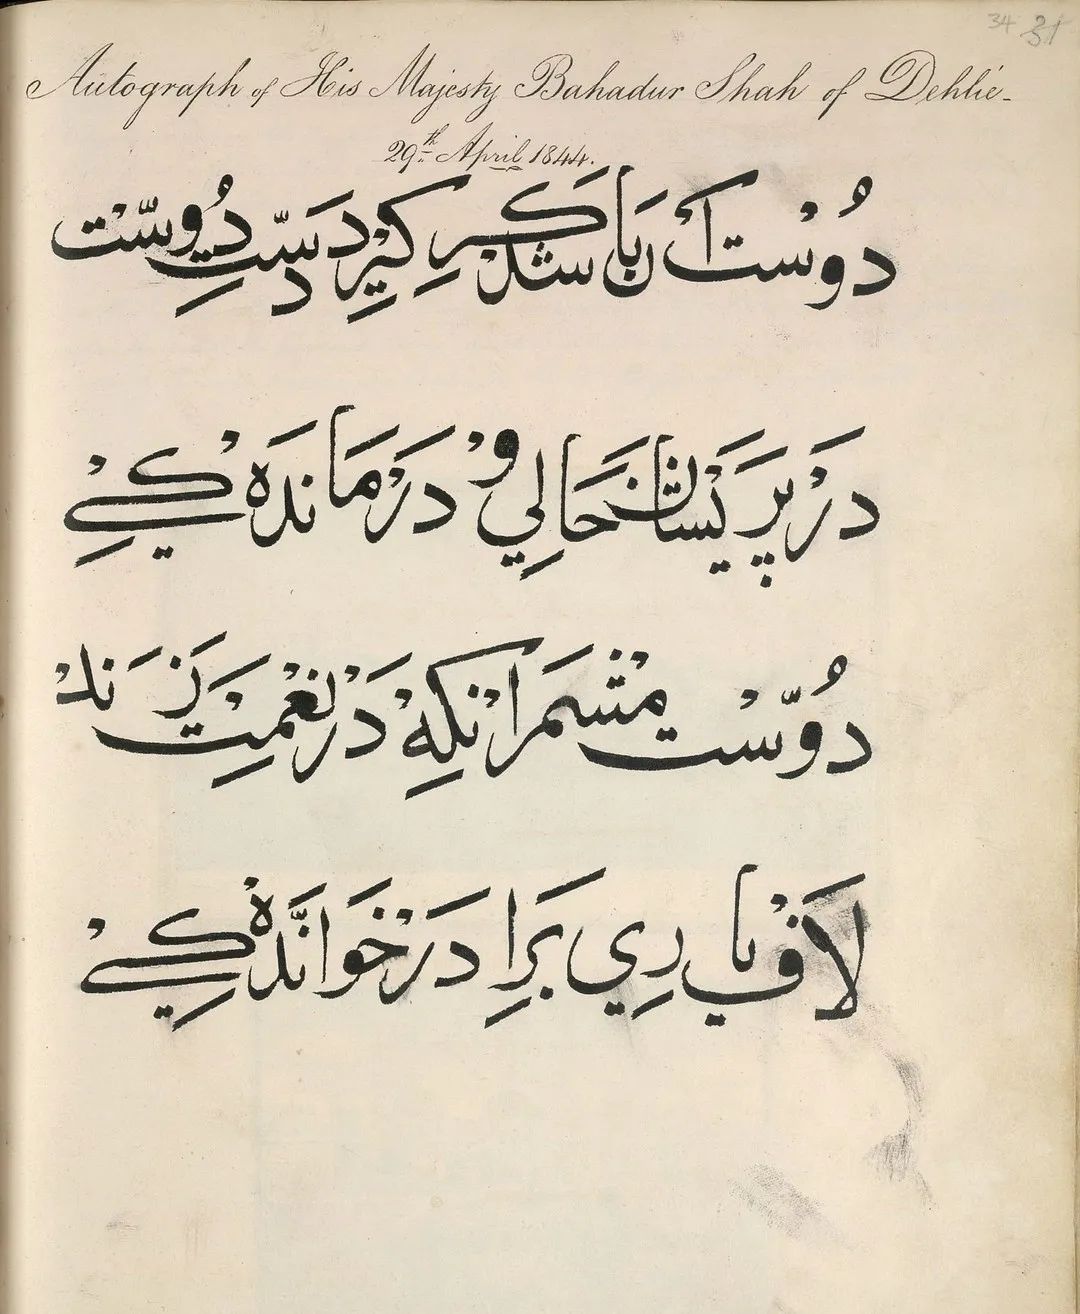 34 31
Autograph of His Majesty Bahadur Shah of Dehlie-
29th April 1844.
دوست آن باشد که گیرد دست دوست
در پریشان حالی و درماندگی
دوست مشمر آنکه در نعمت زند
لاف یاری برادر خواندگی